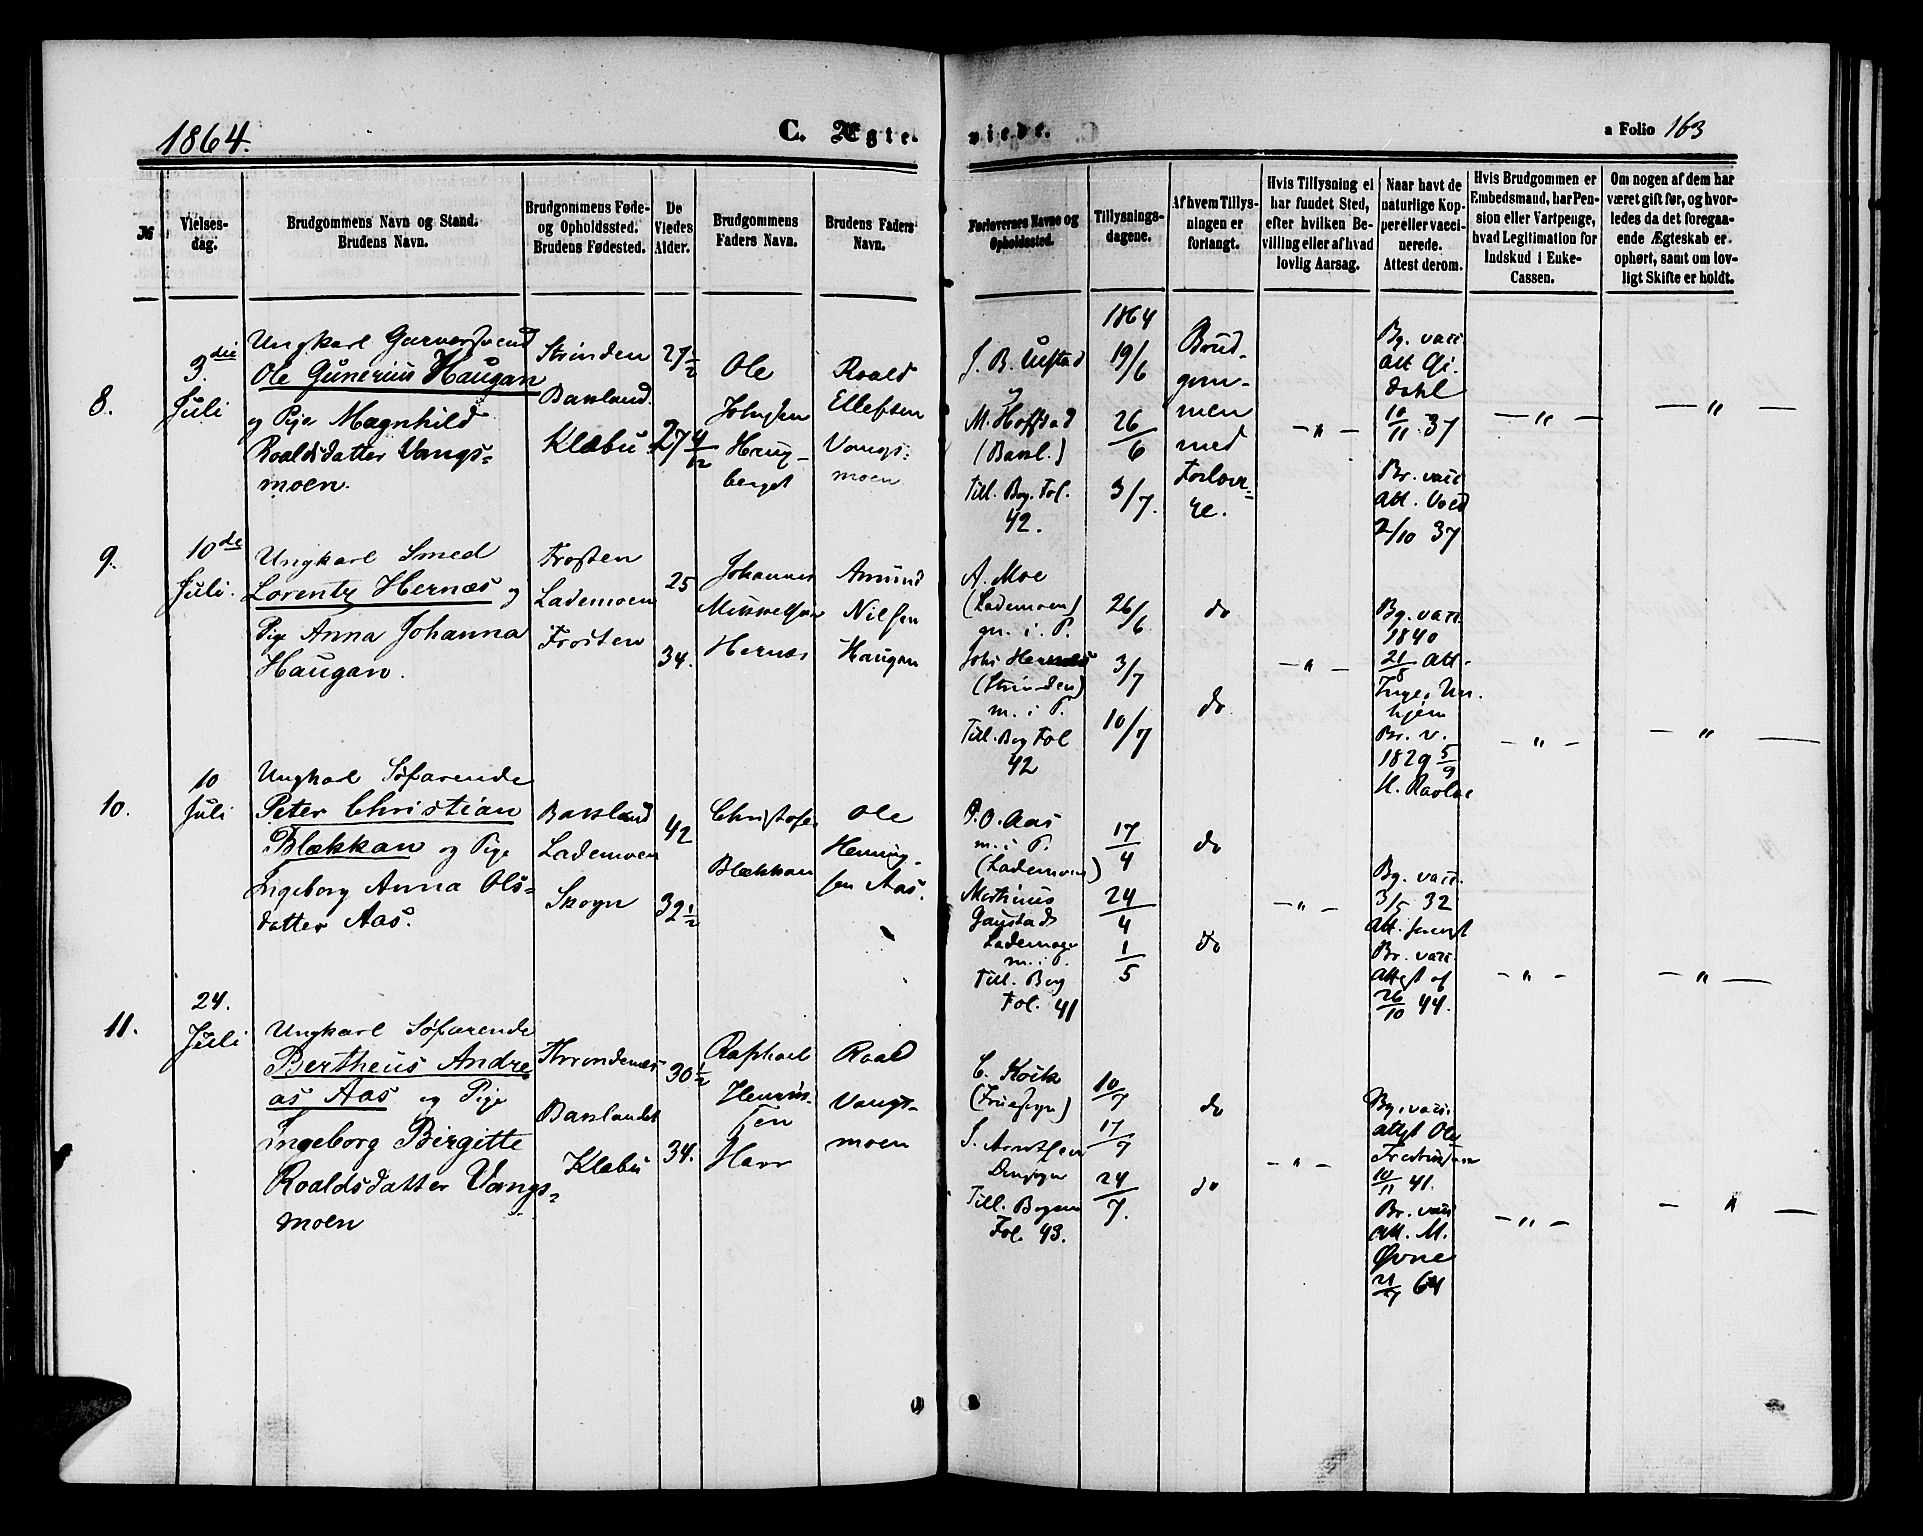 1864.
C. Ægte-
viede.
a Folio 163
№
Vielses-
dag.
Brudgommens Navn og Stand.
Brudens Navn.
Brudgommens Føde-
og Opholdssted.
Brudens Fødested.
De
Viedes
Alder.
Brudgommens
Faders Navn.
Brudens Faders
Navn.
Forlovernes Navne og
Opholdssted.
Tillysnings-
dagene.
Af hvem Tillys-
ningen er
forlangt.
Hvis Tillysning ei
har fundet Sted,
efter hvilken Be-
villing eller af hvad
lovlig Aarsag.
Naar havt de
naturlige Kop-
per eller vacci-
nerede.
Attest derom.
Hvis Brudgommen er
Embedsmand, har Pen-
sion eller Vartpenge,
hvad Legitimation for
Indskud i Enke-
Cassen.
Om nogen af dem har
været gift før, og hvor-
ledes da det foregaa-
ende Ægteskab er
ophørt, samt om lov-
ligt Skifte er holdt.
8.
3die
Juli
Ungkarl Garversvend
Ole Gunerius Haugan
og Pige Magnhild
Roaldsdatter Vangs-
moen.
Strinden
Bakland.
Klæbu
27 1/2
27 4/12
Ole
Johnsen
Haug-
berget
Roald
Ellefsen
Vangs-
moen
J. B. Ulstad
M. Hofstad
(Bakl.)
Till. Bog. Fol.
42.
1864
19/6
26/6
3/7.
Brud-
gom-
men
med
Forlove-
re.
- " -
Bg. vacc
Att Gi.
Dahl
10/11 37
Br. vacc
Att. Voed
2/10 37
- " -
- " -
9.
10de
Juli.
Ungkarl Smed
Lorentz Hernæs og
Pige Anna Johanna
Haugan.
Frosten
Lademoen
Frosten
25
34.
Johannes
Mikkelsen
Hernæs
Amund
Nilsen
Haugan
A. Moe
(Lademoen)
gm. i. P.
Johs Hernæs
(Strinden)
m. i P.
Till. Bog Fol
42
26/6
3/7
10/7
do
do
- " -
Bg. vacc.
1840
21/8 Att.
Br. v.
1829 5/9
- " -
- " -
10.
10
Juli
Ungkarl Søfarende
Peter Christian
Blækkan og Pige
Ingeborg Anna Ols-
datter Aas.
Bakland
Lademoen
Skogn
42
32 1/2
Christofer
Blækkan
Ole
Henning-
sen Aas.
P. O. Aas
m. i P.
(Lademoen)
Marthinus
Gaustad
Lademoen
m. i P.
Till. Bog
Fol. 41
17/4
24/4
1/5
do
do
- " -
Bg. vacc.
3/5 32
Br. vacc.
Attest af
26/10 44.
- " -
- " -
11.
24.
Juli
Ungkarl Søfarende
Bertheus Andre-
as Aas og Pige
Ingeborg Birgitte
Roaldsdatter Vangs-
moen
Throndenæs
Baklandet
Klæbu
30 1/2
34.
Raphael
Henrik-
sen
Roald
Vangs-
moen
C. Koik
(Fruesogn)
S. Arntsen
Domsogn
Till. Bogen
Fol. 43.
10/7
17/7
24/7.
do
do
- " -
Bg. vacc.
attest Ole
Fredriksen
10/11 41.
Br. vacc
att. M.
Øvne
21/7 64
- " -
- " -